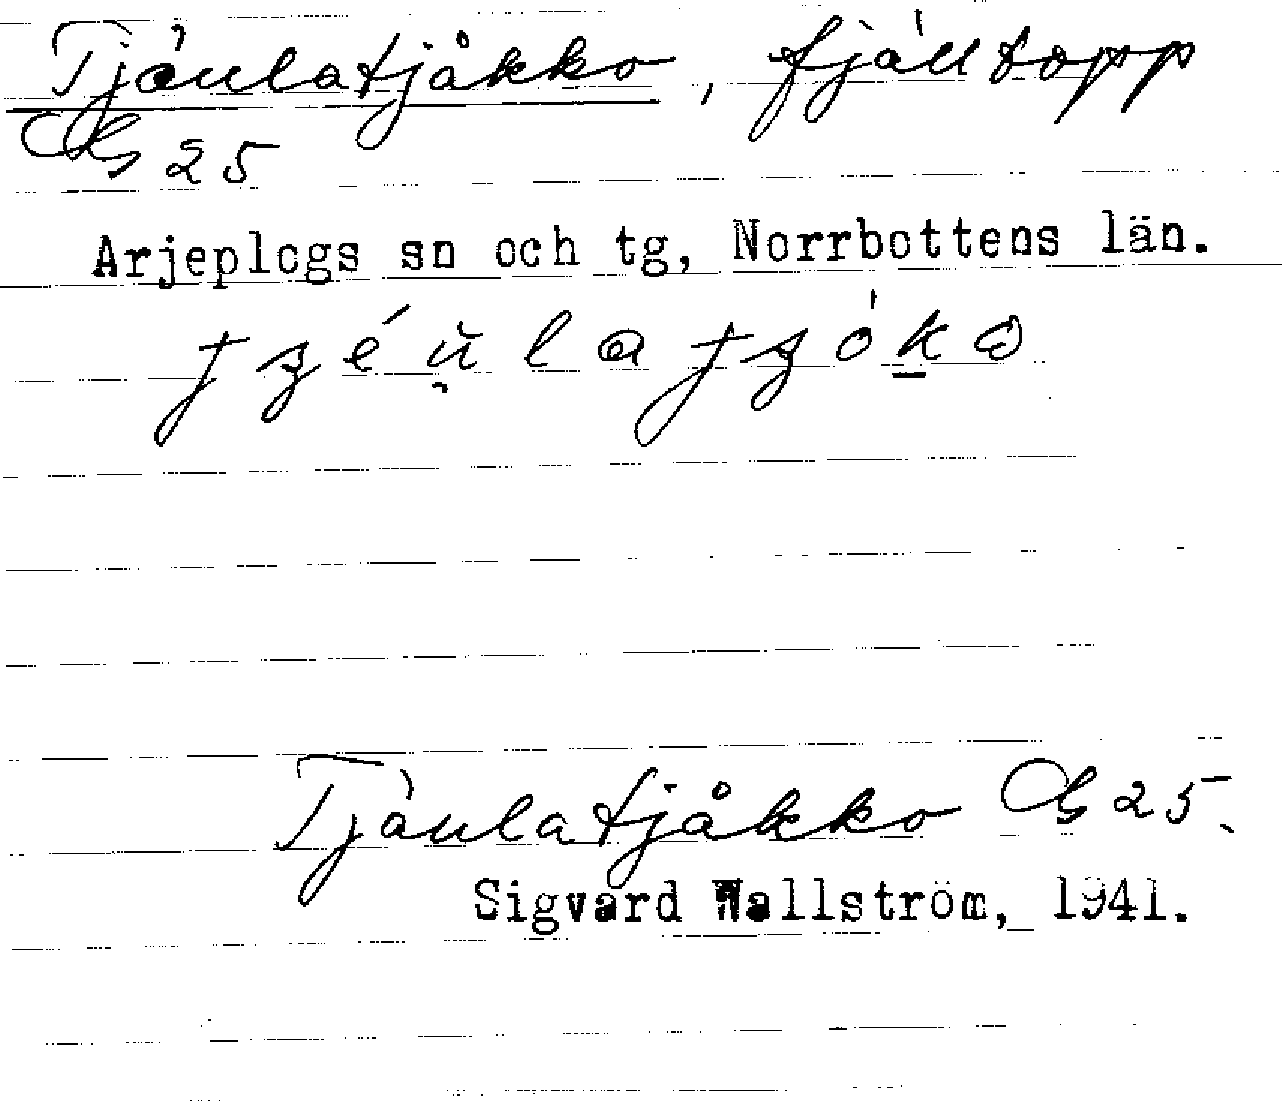 Tjäulatjåkko, fjälltopp
Gb 25
Arjeplogs sn och tg, Norrbottens län.
Tjäulatjåkko Gb 25.
Sigvard Wallström, 1941.